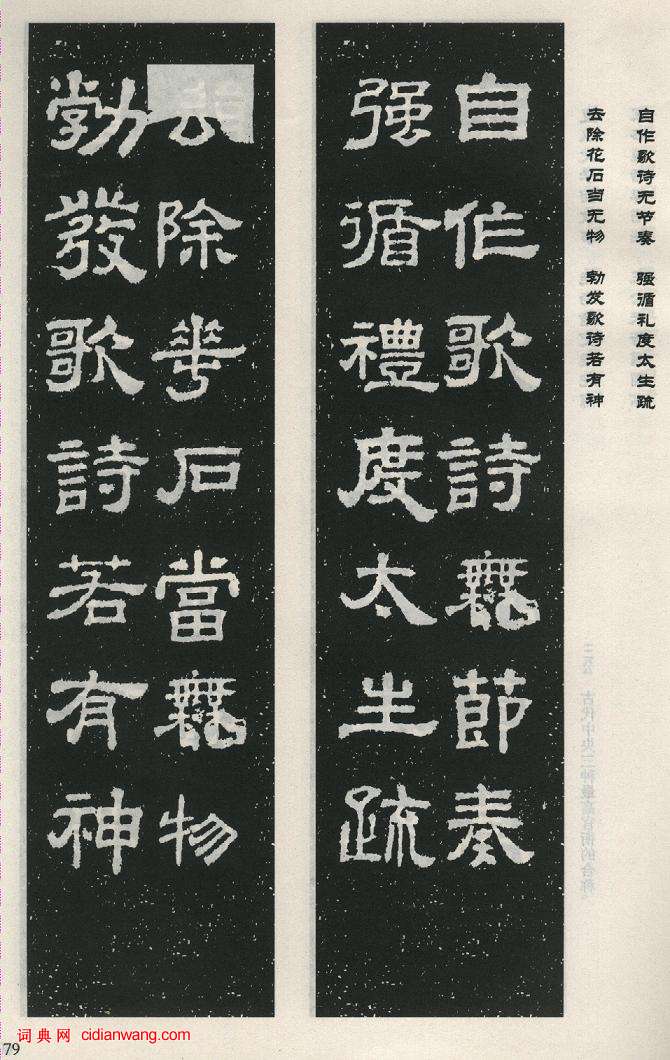 自作歌诗无节奏 强循礼度太生疏
去除花石当无物 勃发歌诗若有神
自作歌詩無節奏
强循禮度太生疏
去除華石當無物
勃發歌詩若有神
词典网 cidianwang.com
79